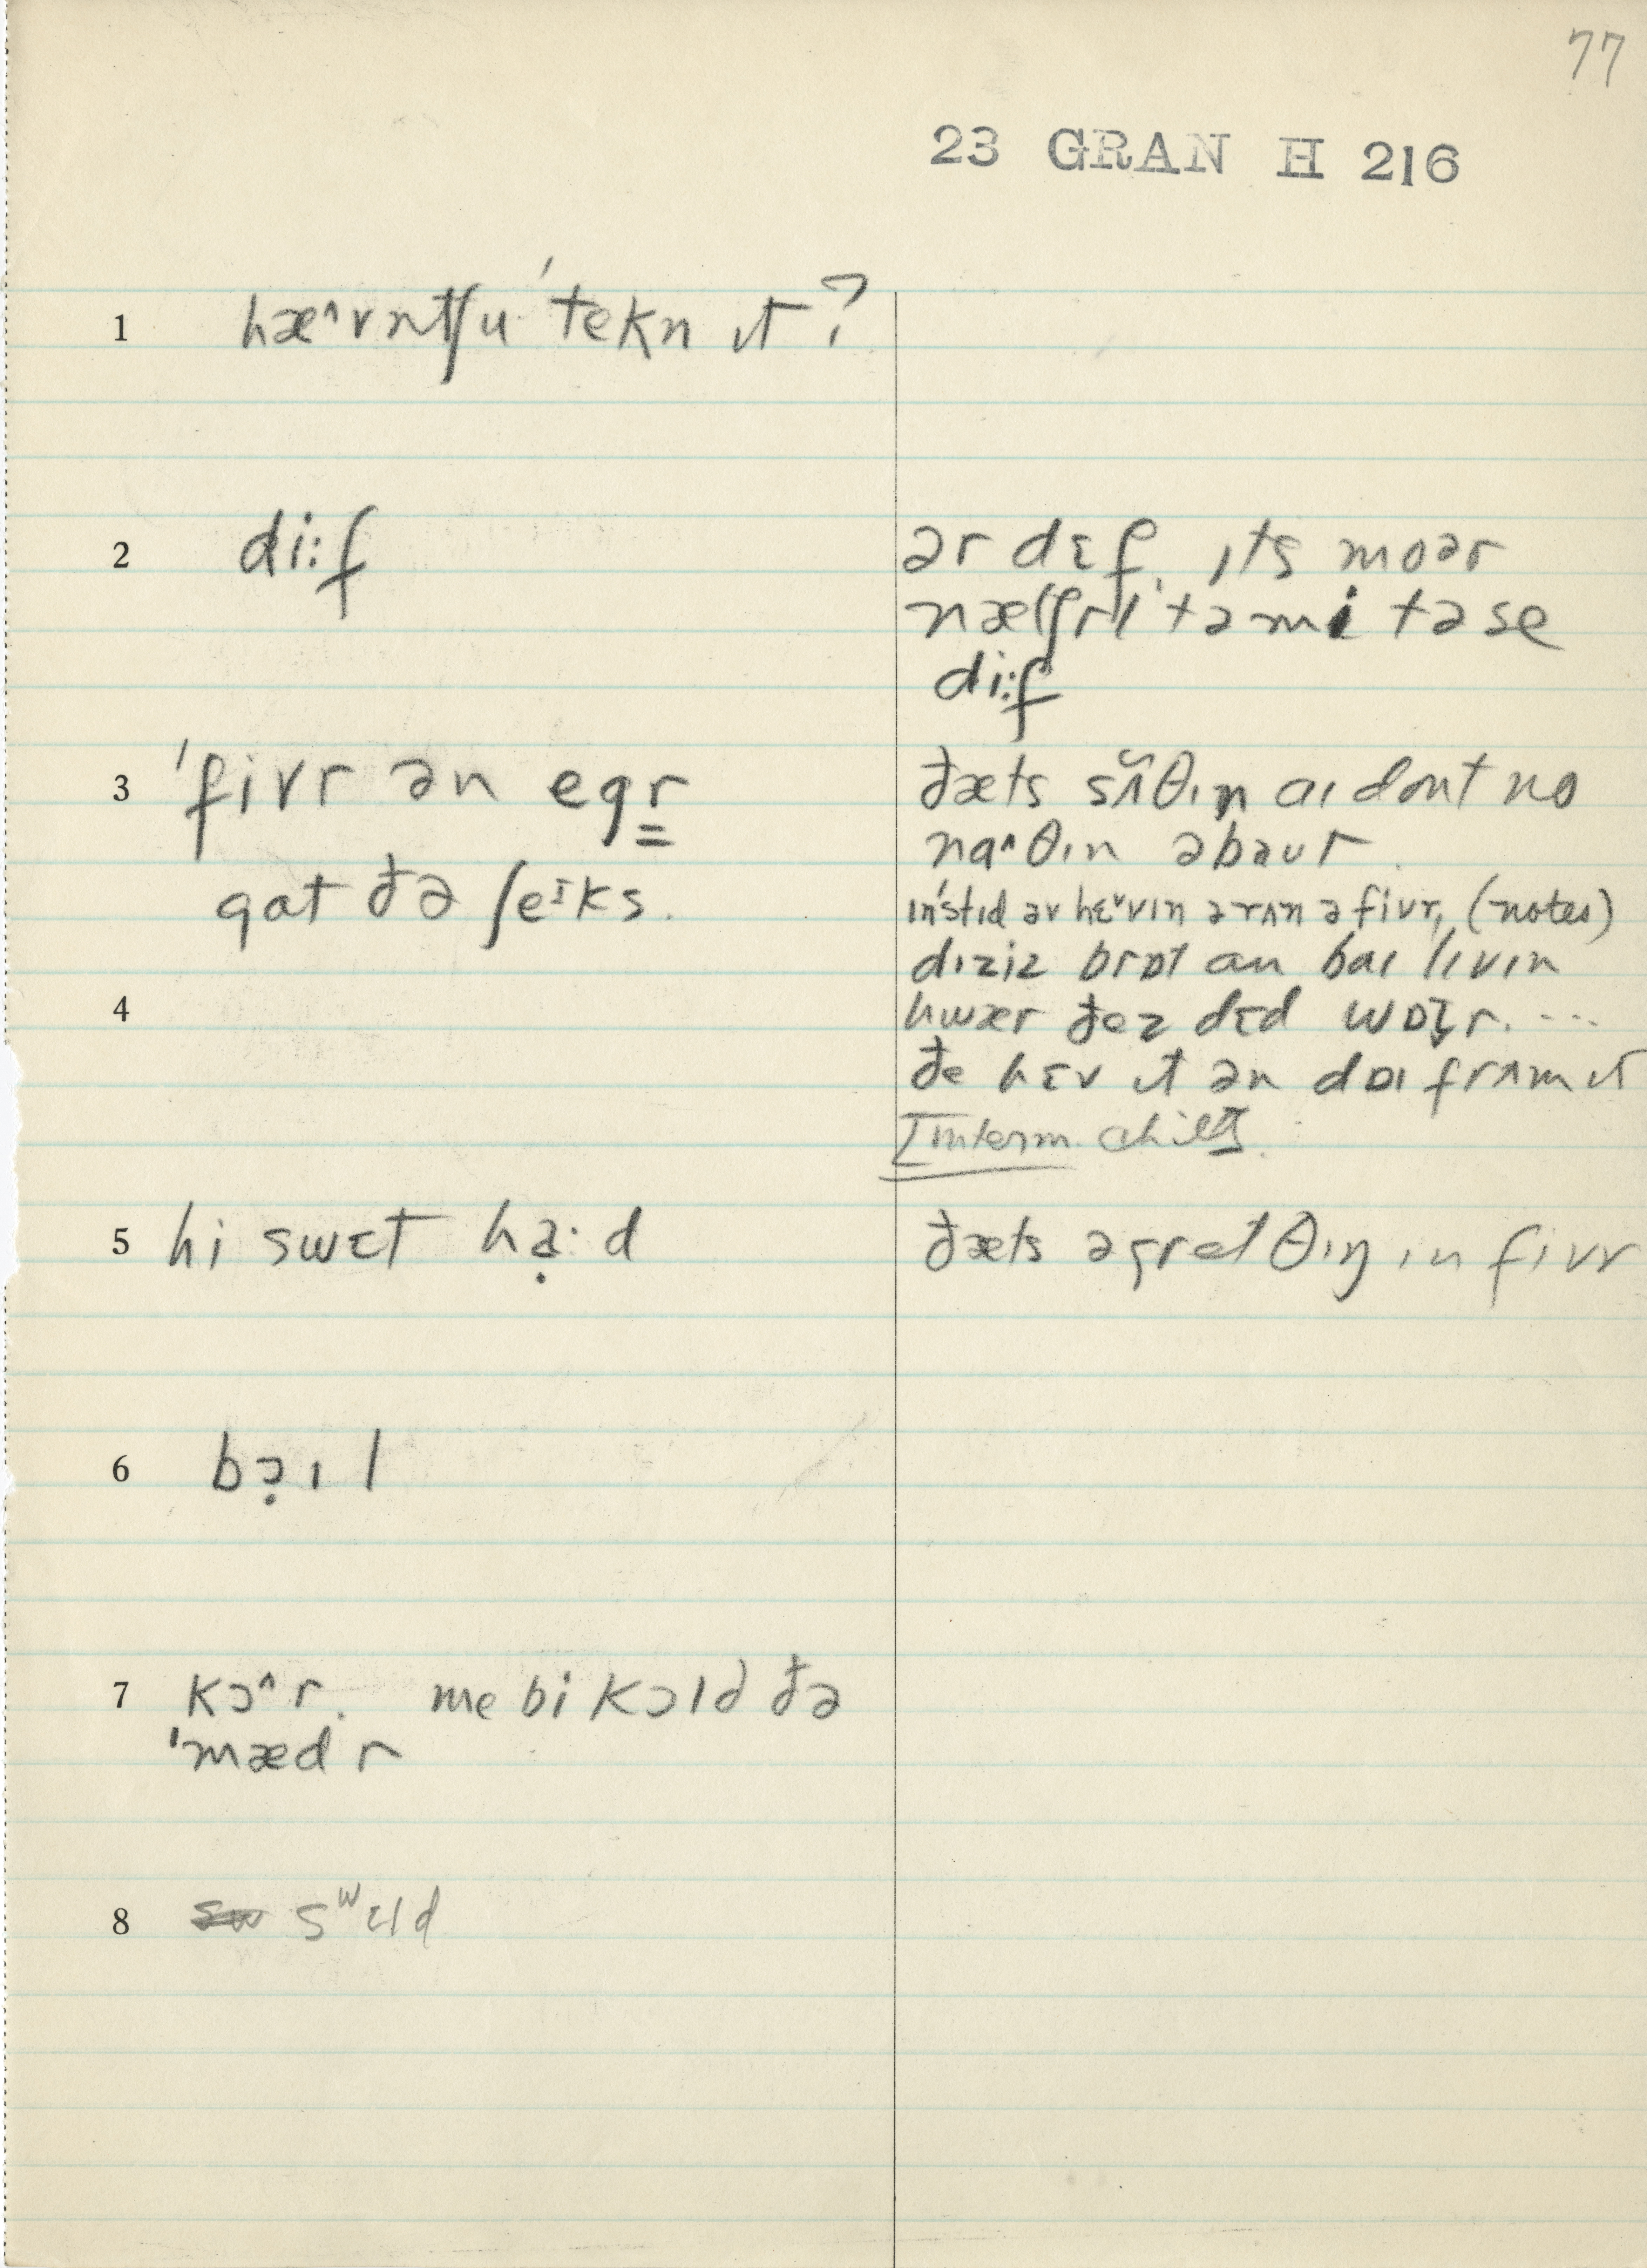 77
23 GRAN H 216
1 hæ^vntʃu 'tekn ɪt?
2 di:f
ər dɛf. ɪts moər
nætʃrl tə mi tə se
di:f
3 'fivr ən egr̳
gat ðə ʃeᶦks.
ðæts sʌ̆θɪn aɪ dont no
na^θɪn əbaut.
ɪn'stɪd əv hɛˇvɪn ərʌn ə fivr, (notes)
dɪziz brɒt an baɪ lɪvɪn
4
hwær ðez dɛd wɒt̬r....
ðe hɛv ɪt ən dɒɪ frʌm ɪt
5 hi swɛt ha̤·d
ðæts ə gret θɪŋ ɪn fivr
6 bɔ̣ɪl
7 kɔ^r. me bi kɔld ðə
'mædr
8 sʷɛld